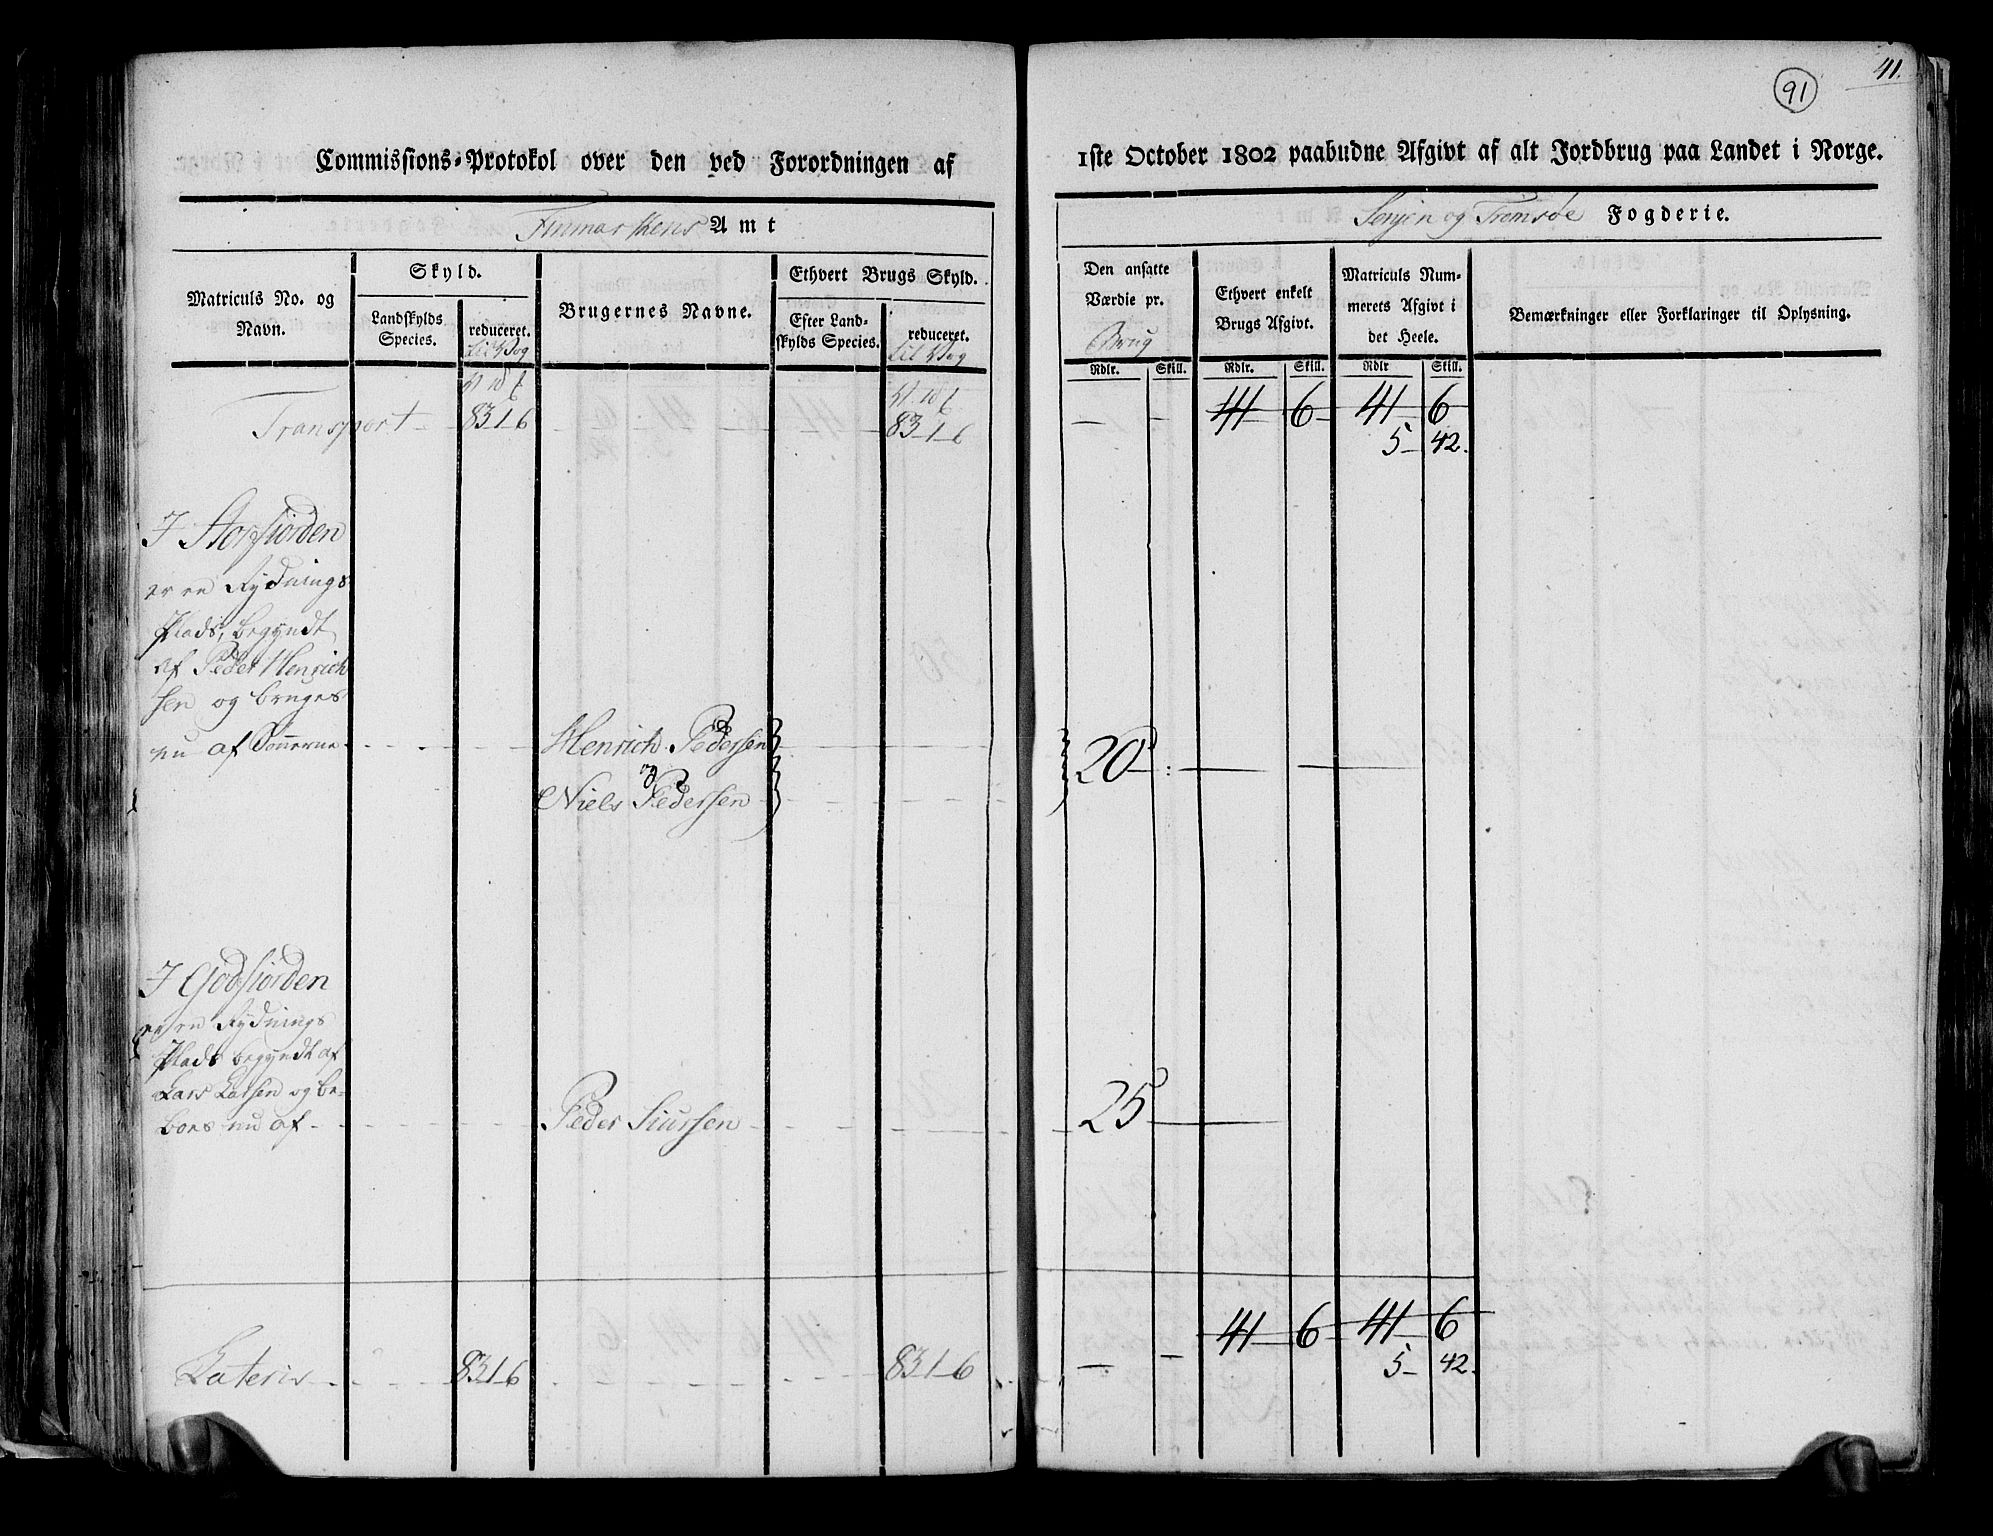 41.
91
Commissions-Protokol over den ved Forordningen af 1ste October 1802 paabudne Afgivt af alt Jordbrug paa Landet i Norge.
Finmarkens Amt
Senjen og Tromsøe Fogderie.
Matriculs No. og Navn.
Skyld.
Landskylds Species.
reduceret.
til Vog
Brugernes Navne.
Ethvert Brugs Skyld.
Efter Landskylds Species.
reduceret.
til Vog
Den ansatte Værdie pr.
Brug
Rdlr. Skill.
Ethvert enkelt Brugs Afgivt.
Rdlr. Skill.
Matriculs Nummerets Afgivt i det Heele.
Rdlr Skill.
Bemærkninger eller Forklaringer til Oplysning.
Transport - 83 1 6 - 83 - 1 - 6 — - 41 6 - 41 6
5 - 42.
I Storfiorden
er en Rydnings
Plads, begyndt
af Peder Henrich
sen og bruges
nu af Sønnerne - - - Henrich Pedersen
og
Niels Pedersen
20 - : — —
I Godfiorden
er en Rydnings
Plads begyndt af
Lars Larsen og be-
boes nu af - - - Peder Siursen - - - 25 —
Lateris - - - 83 1 6 - - - 83 - 1 - 6 — - 41 6 - 41 6
5 - 42.